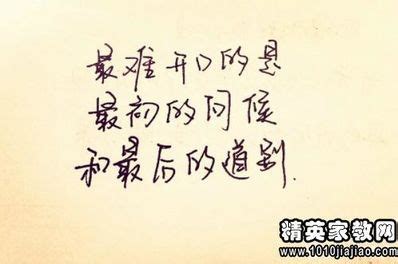 最难开口的是
最初的问候
和最后的道别.
精英家教网
www.1010jiajiao.com